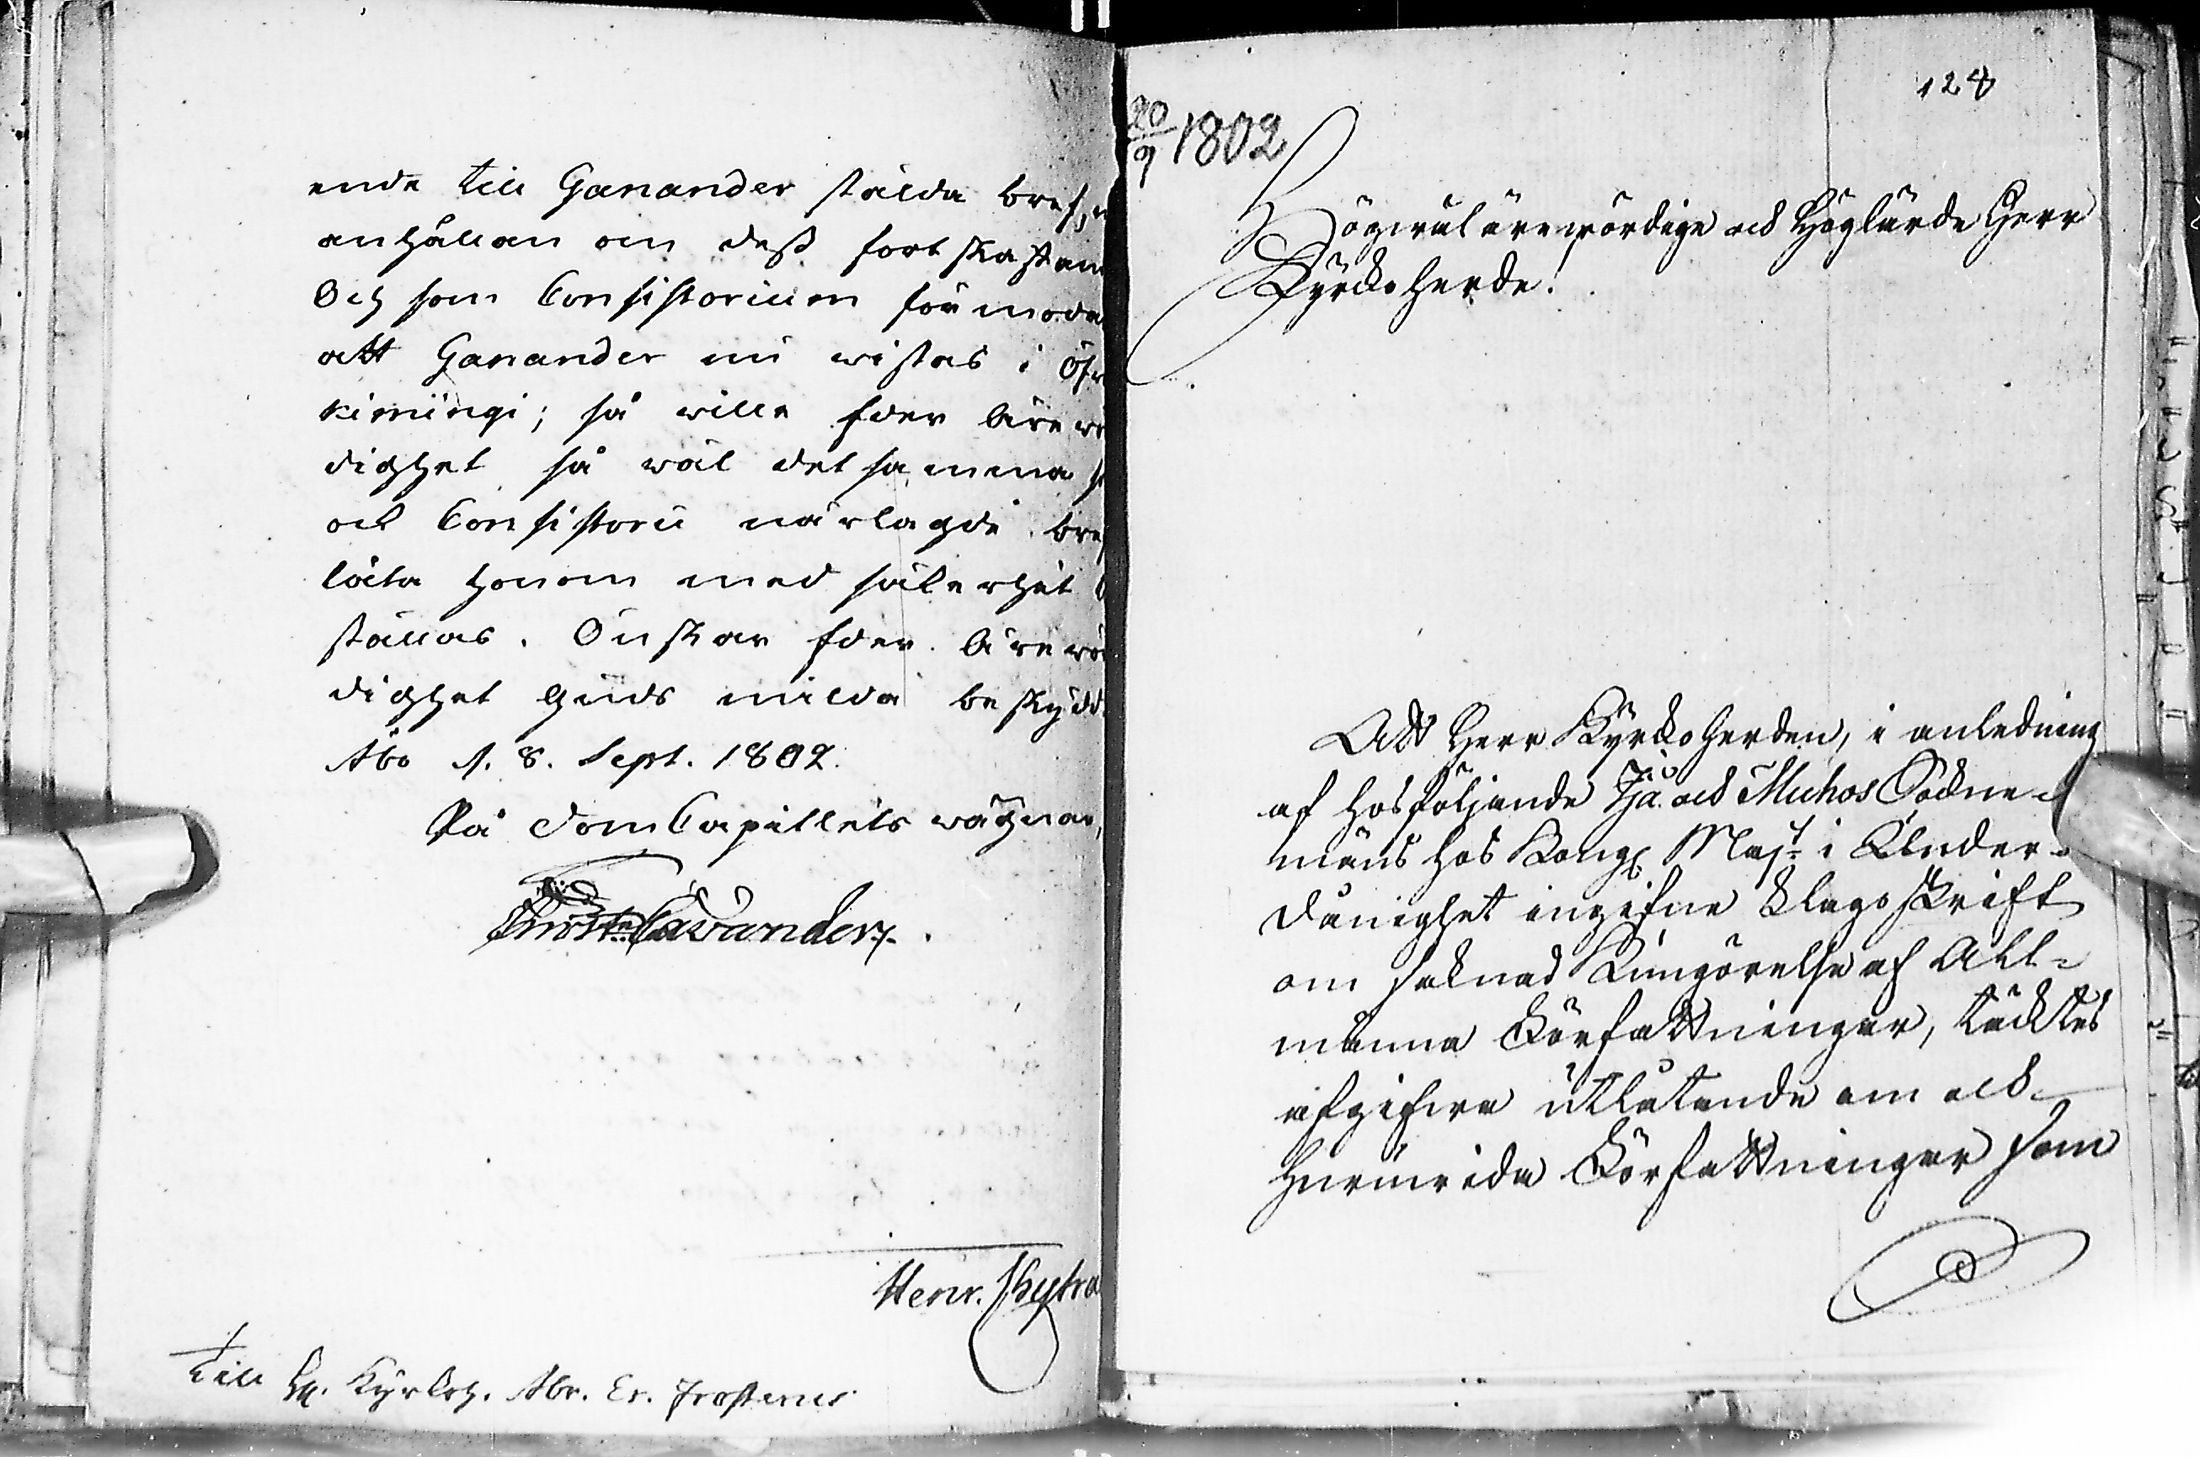 ende till Ganander stälda bref,
anhållan om dess fortskaffan
Och som Consistorium förmoda
att Ganander nu wistas i Öf
kiminge; så wille Eder Ärew
dighet så wäl det samma s
ock Consistorii närlagde bref
låta honom med säkerhet
ställas. Önskar Eder Ärewö
dighet Guds milda beskydd
Åbo d. 8. Sept. 1802.
På DomCapitlets wägnar,
Christ. Cavander.
Henr.
Till H. Kyrkoh. Abr. Er. Frosterus
128
20/9 1802
Högwälärewördige och Höglärde Herr
Kyrckoherde!
Att Herr Kyrckoherden, i anledning
af hosföljande Ijå och Muhos Sockne-
mäns hos Kongl Majt i Under-
dånighet ingifne klagoskrift
om saknad Kungörelse af All-
männa Författningar, täcktes
afgifwa utlåtande om och
huruwida Författningar som